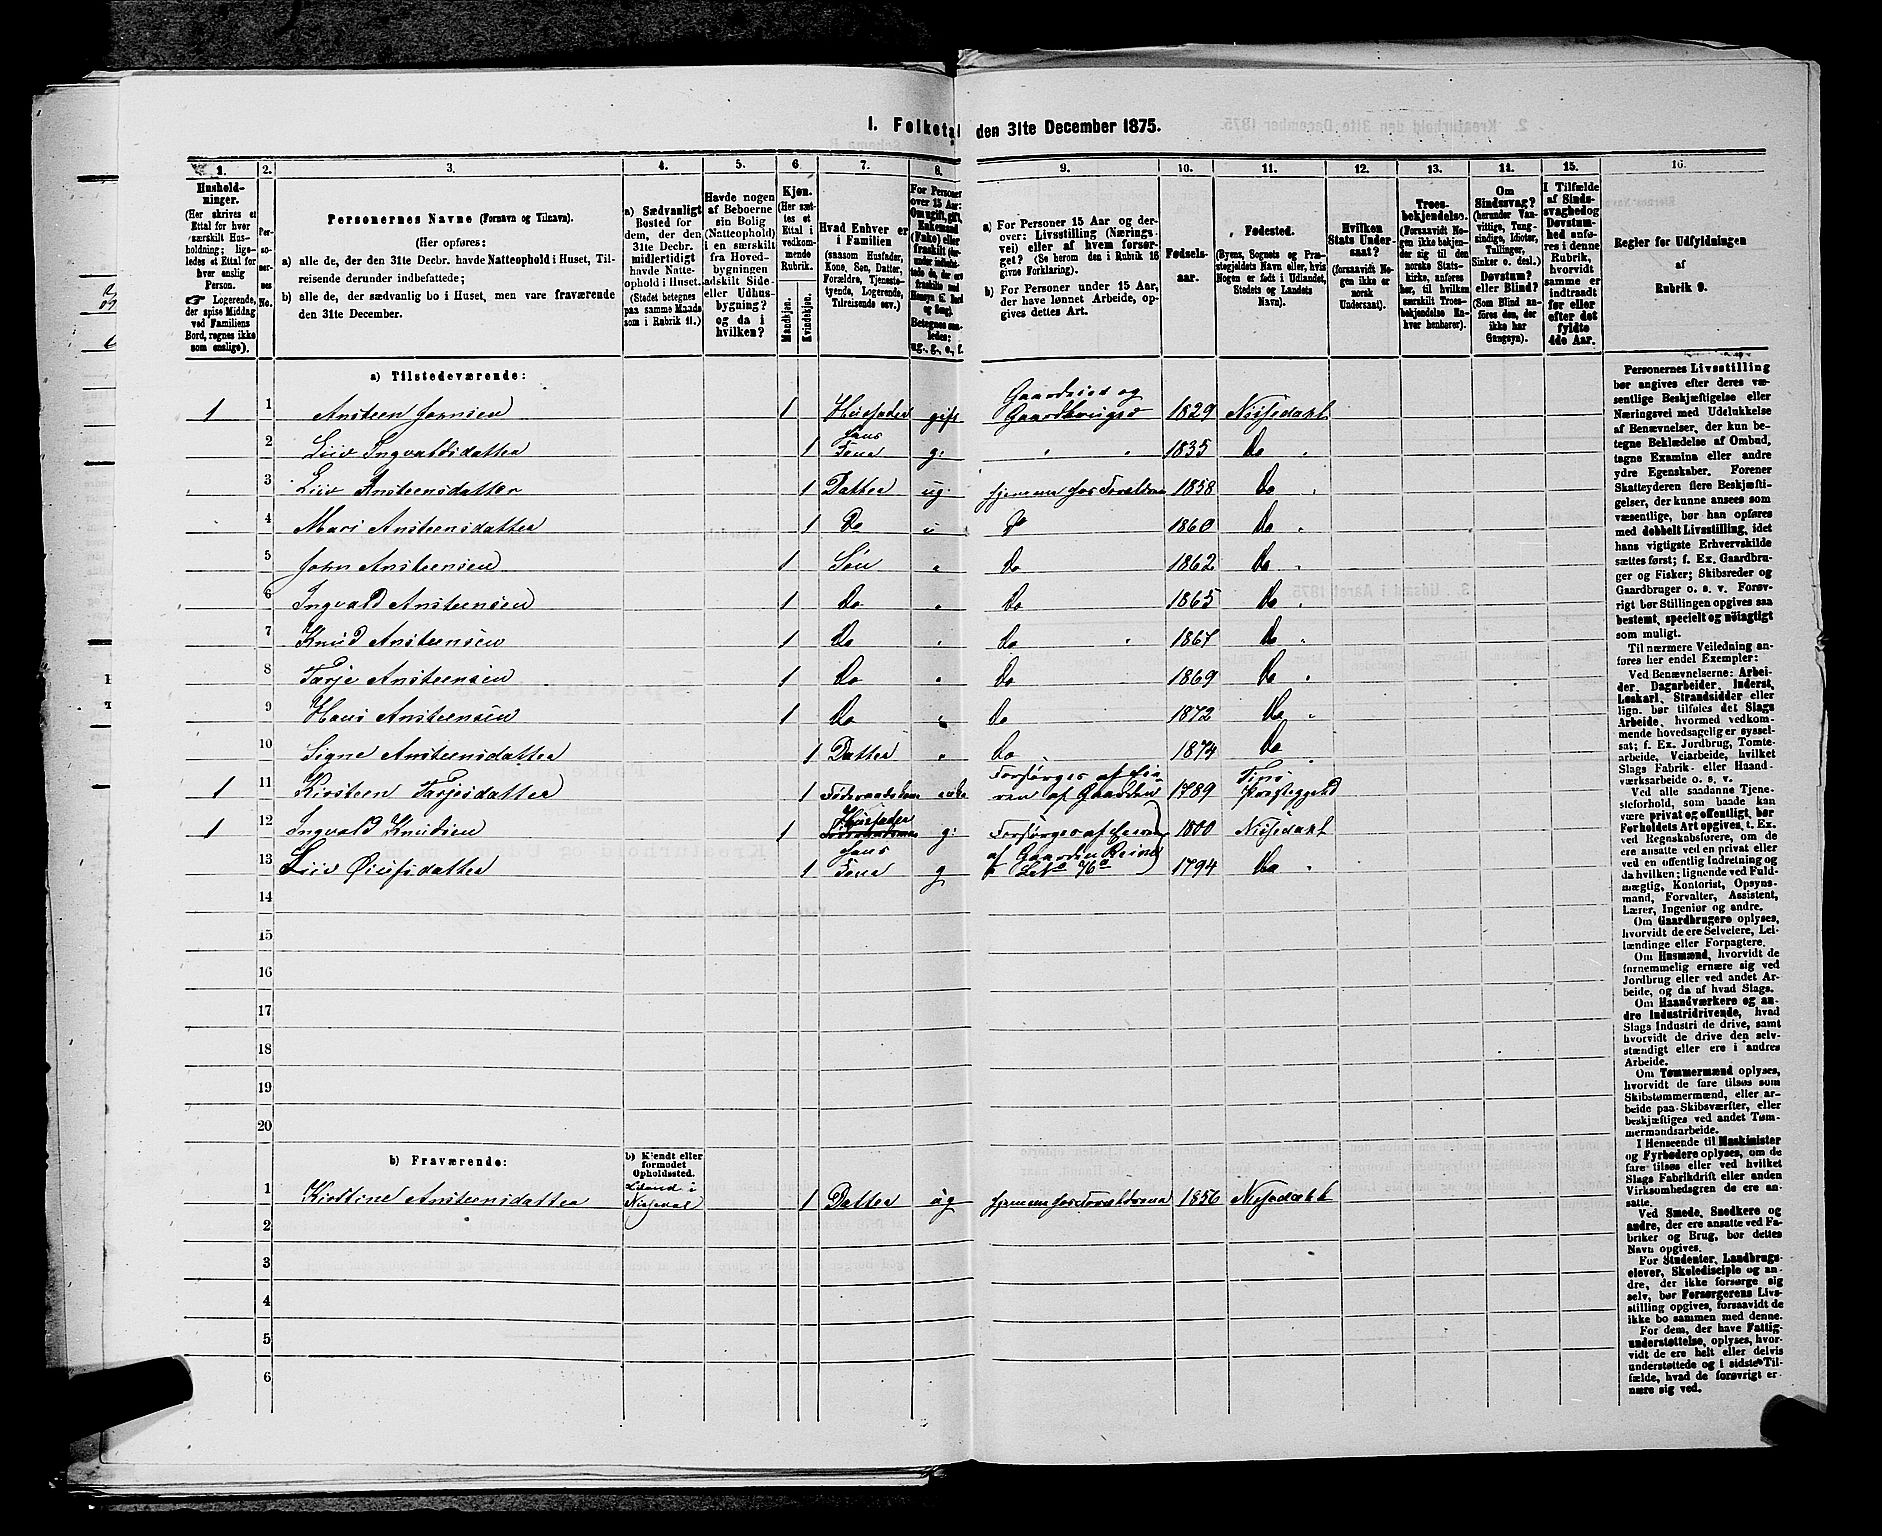 I. Folketal den 31te December 1875.
1. 2. 3. 4. 5. 6. 7. 8. 9. 10. 11. 12. 13. 14. 15. 16.
Husholdninger. (Her skrives et Ettal for hver særskilt Husholdning; ligeledes et Ettal for hver enslig Person. Logerende, der spise Middag ved Familiens Bord, regnes ikke som enslige).
Personernes No.
Personernes Navne (Fornavn og Tilnavn).
(Her opføres:
a) alle de, der den 31te Decbr. havde Natteophold i Huset, Tilreisende derunder indbefattede;
b) alle de, der sædvanlig bo i Huset, men vare fraværende den 31te December.
a) Sædvanligt Bosted for dem, der den 31te Decbr. midlertidigt havde Natteophold i Huset. (Stedet betegnes paa samme Maade som i Rubrik 11.)
Havde nogen af Beboerne sin Bolig (Natteophold) i en særskilt fra Hovedbygningen adskilt Side- eller Udhusbygning? og da i hvilken?
Kjøn. (Her sættes et Ettal i vedkommende Rubrik.
Mandkjøn. Kvindekjøn.
Hvad Enhver er i Familien (saasom Husfader, Kone, Søn, Datter, Forældre, Tjenestetyende, Logerende, Tilreisende osv.)
For Personer over 15 Aar:
Betegnes saaledes: ug., g., e., f.
a) For Personer 15 Aar og derover: Livsstilling (Næringsvei) eller af hvem forsørget? (Se herom den i Rubrik 16 givne Forklaring).
b) For Personer under 15 Aar, der have lønnet Arbeide, opgives dettes Art.
Fødselsaar.
Fødested. (Byens, Sognets og Præstegjeldets Navn eller, hvis Nogen er født i Udlandet, Stedets og Landets Navn).
Hvilken Stats Undersaat? (forsaavidt Nogen ikke er norsk Undersaat).
Troesbekjendelse. (Forsaavidt Nogen ikke bekjender sig til den norske Statskirke, anføres her, til hvilken særskilt Troesbekjendelse Enhver henhører).
Om Sindssvag? (herunder Vanvittige, Tungsindige, Idioter, Tullinger, Sinker o. desl.). Døvstum? eller Blind? (Som Blind anføres den, der ikke har Gangsyn).
I Tilfælde af Sindssvaghed og Døvstumhed anføres i denne Rubrik, hvorvidt samme er indtraadt før eller efter det fyldte 4de Aar.
Regler for Udfyldningen af Rubrik 9.
a) Tilstedeværende:
1 1 Ansteen Jornsen 1 Husfader gift Gaardeier og Gaardbruger 1829 Nissedahl
2 Liv Ingvaldsdatter 1 Hans Kone g: " " 1835 Do "
3 Liv Ansteensdatter 1 Datter ug. hjemme hos Forældrene 1858 Do "
4 Mari Ansteensdatter 1 Do u Do 1860 Do "
5 John Ansteensen 1 Søn " Do 1862 Do "
6 Ingvald Ansteensen 1 Do " Do 1865 Do "
7 Knud Ansteensen 1 Do " Do " 1867 Do "
8 Tarje Ansteensen 1 Do " Do 1869 Do "
9 Hans Ansteensen 1 Do " Do 1872 Do "
10 Signe Ansteensdatter 1 Datter " Do 1874 Do
1 11 Kirsteen Tarjesdatter 1 Føderaadskone enke Forsørges af Eieren af Gaarden 1789 Præstegjeld
1 12 Ingvald Knudsen 1 Husfader g: Forsørges af Eieren 1800 Nissedahl
13 Liv 1 hans Kone g af Gaarden 1794 Do "
14
15
16
17
18
19
20
b) Fraværende:
b) Kjendt eller formodet Opholdssted.
1 Kirstine Ansteensdatter i Nissedal 1 Datter ug hjemme hos Forældrene 1856 Nissedahl
2
3
4
5
6
Personernes Livsstilling
bør angives efter deres væ-
sentlige Beskjæftigelse eller
Næringsvei med Udelukkelse
af Benævnelser, der kun be-
tegne Beklædelse af Ombud,
tagne Examina eller andre
ydre Egenskaber. Forener
Skatteyderen flere Beskjæfti-
gelser, der kunne ansees som
væsentlige, bør han opføres
med dobbelt Livsstilling, idet
hans vigtigste Erhvervskilde
sættes først; f. Ex. Gaardbru-
ger og Fisker; Skibsreder og
Gaardbruger o. s. v. Forøv-
rigt bør Stillingen opgives saa
bestemt, specielt og nøiagtigt
som muligt.
Til nærmere Veiledning an-
føres her endel Exempler:
Ved Benævnelserne: Arbei-
der, Dagarbeider, Inderst,
Løskarl, Strandsidder eller
lign. bør tilføies det Slags
Arbeide, hvormed vedkom-
mende hovedsagelig er syssel-
sat; f. Ex. Jordbrug, Tomte-
arbeide, Veiarbeide, hvilket
Slags Fabrik- eller Haand-
værksarbeide o. s. v.
Ved alle saadanne Tjene-
steforhold, som baade kan
være privat og offentligt, bør
Forholdets Art opgives, t. Ex.
ved Regnskabsførere, om de
ere ansatte ved en privat eller
ved en offentlig Indretning og
da hvilken; lignende ved Fuld-
mægtig, Kontorist, Opsyns-
mand, Forvalter, Assistent,
Lærer, Ingeniør og andre.
Om Gaardbrugere oplyses,
hvorvidt de ere Selveiere, Lei-
lændinge eller Forpagtere.
Om Husmænd, hvorvidt de
fornemmelig ernære sig ved
Jordbrug eller ved andet Ar-
beide, og da af hvad Slags.
Om Haandværkere og an-
dre Industridrivende, hvad
Slags Industri de drive, samt
hvorvidt de drive den selv-
stændigt eller ere i andres
Arbeide.
Om Tømmermænd oplyses,
hvorvidt de fare tilsøs som
Skibstømmermænd, eller ar-
beide paa Skibsværfter, eller
beskjæftiges ved andet Tøm-
mermandsarbeide.
I Henseende til Maskinister
og Fyrbødere oplyses, om de
fare tilsøs eller ved hvilket
Slags Fabrikdrift eller anden
Virksomhedsgren de ere an-
satte.
Ved Smede, Snedkere og
andre, der ere ansatte ved Fa-
briker og Brug, bør dettes
Navn opgives.
For Studenter, Landbrugs-
elever, Skoledisciple og an-
dre, der ikke forsørge sig
selv, bør Forsørgerens Livs-
stilling opgives, forsaavidt de
ikke bo sammen med denne.
For dem, der have Fattig-
understøttelse, oplyses, hvor-
vidt de ere helt eller delvis
understøttede og i sidste Til-
fælde, hvad de forøvrigt er-
nære sig ved.